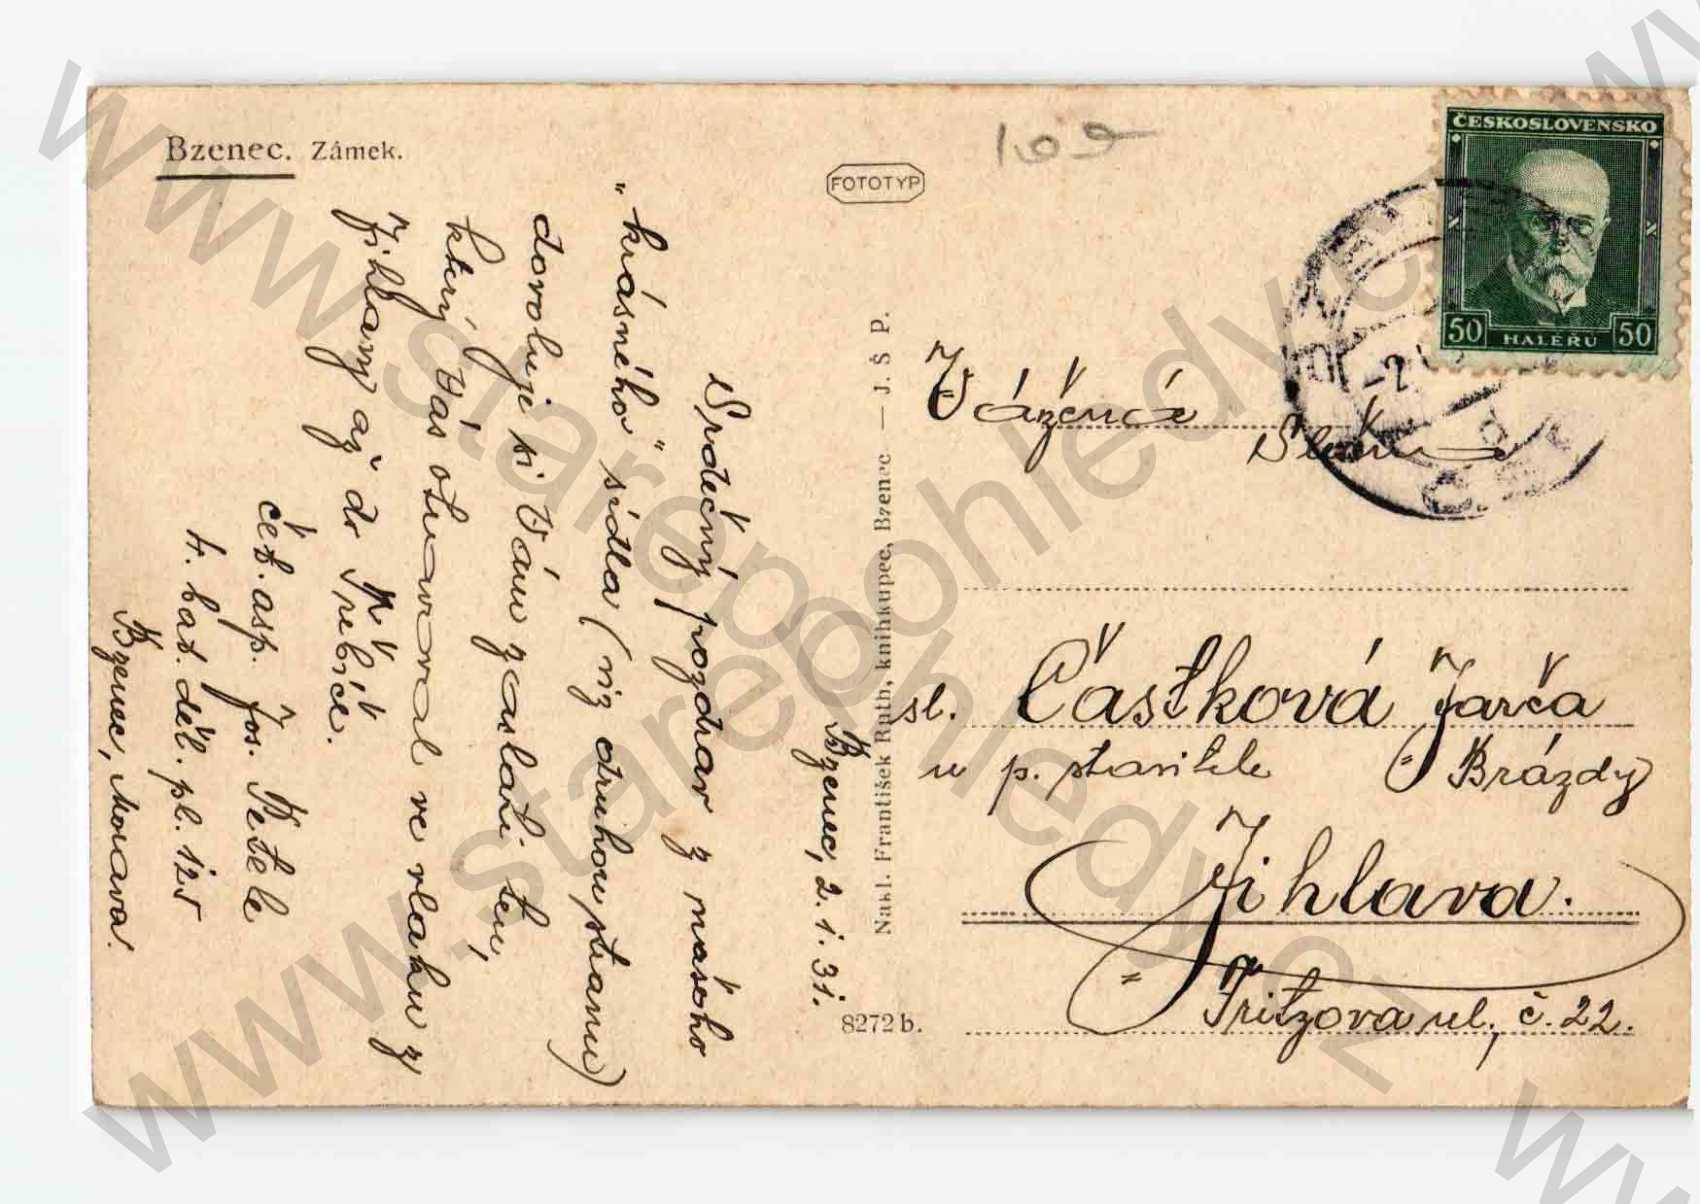 Bzenec. Zámek.
FOTOTYP
109
ČESKOSLOVENSKO
50 HALÉŘŮ 50
Bzenec, 2. 1. 31.
Srdečný pozdrav z našeho
„krásného" sídla (viz druhou stranu)
dovoluji si Vám zaslati ten,
který Vás otravoval ve vlaku z
Jihlavy až do Třebíče.
čet. asp. Jos. Petele
4. bat. děl. pl. 125
Bzenec, Morava.
Nakl. František Ruth, knihkupec, Bzenec — J. Š P.
8272 b.
Vážená
Slečna
sl. Částková Jarča
u p. stavitele Brázdy
Jihlava.
Fritzova ul., č. 22.
www.starepohledy.cz
www.starepohledy.cz